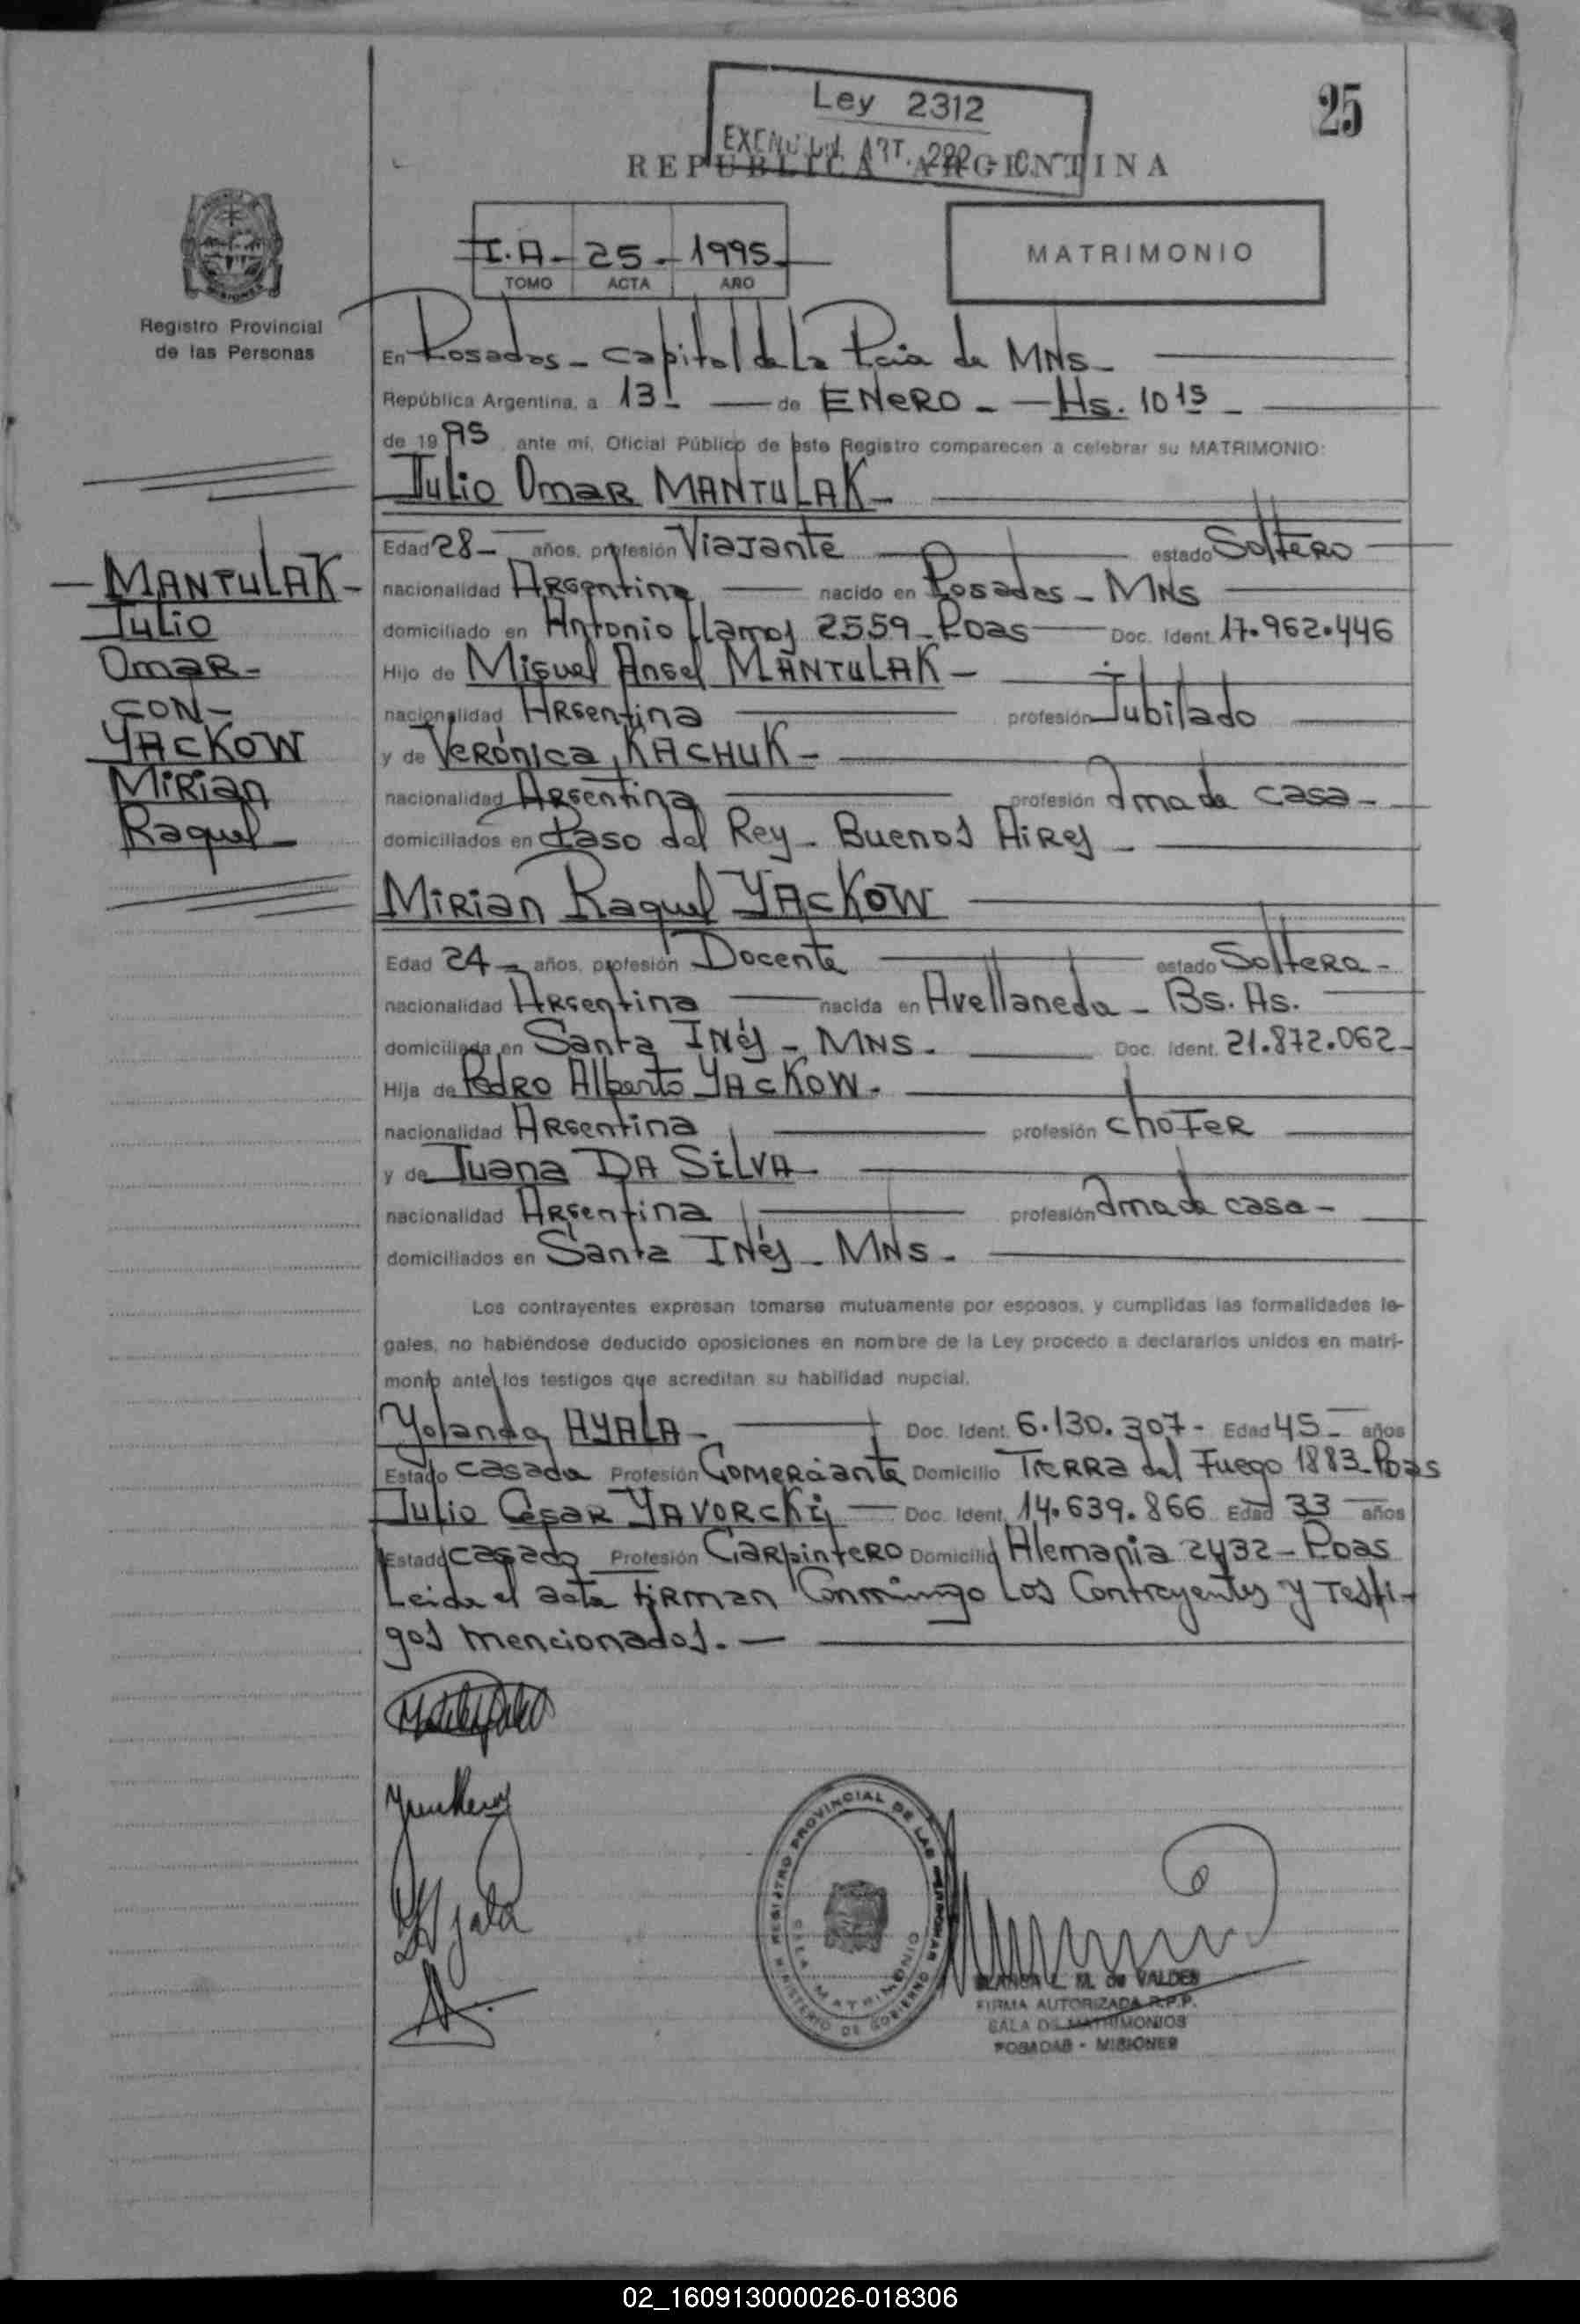 25
Ley 2312
ART.
REPUBLICA ARGENTINA
I.A - 25 - 1995
TOMO ACTA AÑO
MATRIMONIO
Registro Provincial
de las Personas
En Posadas - Capital de La Pcia de MNs -
República Argentina, a 13 - de ENERO - Hs. 10 15 -
de 1995 ante mí, Oficial Público de este Registro comparecen a celebrar su MATRIMONIO:
Julio Omar MANTULAK -
Edad 28 - años, profesión Viajante estado Soltero
nacionalidad Argentina nacido en Posadas - MNs
domiciliado en Antonio Llamos 2559 - Pdas Doc. Ident. 17.962.446
Hijo de Miguel Angel MANTULAK -
nacionalidad Argentina profesión Jubilado
y de Verónica KACHUK -
nacionalidad Argentina profesión Ama de casa -
domiciliados en Paso del Rey - Buenos Aires -
MANTULAK -
Julio
Omar -
CON -
YACKOW
Mirian
Raquel -
Mirian Raquel YACKOW
Edad 24 - años, profesión Docente estado Soltera -
nacionalidad Argentina nacida en Avellaneda - Bs. As.
domiciliada en Santa INés - MNS - Doc. Ident. 21.872.062 -
Hija de Pedro Alberto YACKOW -
nacionalidad Argentina profesión chofer
y de Juana DA SILVA -
nacionalidad Argentina profesión Ama de casa -
domiciliados en Santa INés - MNs -
Los contrayentes expresan tomarse mutuamente por esposos, y cumplidas las formalidades le-
gales, no habiéndose deducido oposiciones en nombre de la Ley procedo a declararlos unidos en matri-
monio ante los testigos que acreditan su habilidad nupcial.
Yolanda AYALA - Doc. Ident. 6.130.307 - Edad 45 - años
Estado casada Profesión Comerciante Domicilio Tierra del Fuego 1883 Pdas
Julio César YAVORCKij - Doc. Ident. 14.639.866 Edad 33 años
Estado casado Profesión Carpintero Domicilio Alemania 2432 - Pdas
Leida el acta firman Conmingo Los Contrayentes y Testi-
gos mencionados. -
MINISTERIO DE GOBIERNO REGISTRO PROVINCIAL DE LAS PERSONAS
SALA MATRIMONIO
BLANCA L. M. de VALDES
FIRMA AUTORIZADA R.P.P.
SALA DE MATRIMONIOS
POSADAS - MISIONES
02_160913000026-018306